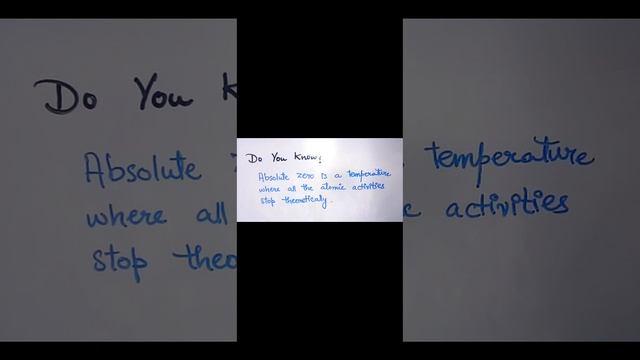 Do You Know?
Absolute zero is a temperature
where all the atomic activities
stop theoreticaly.